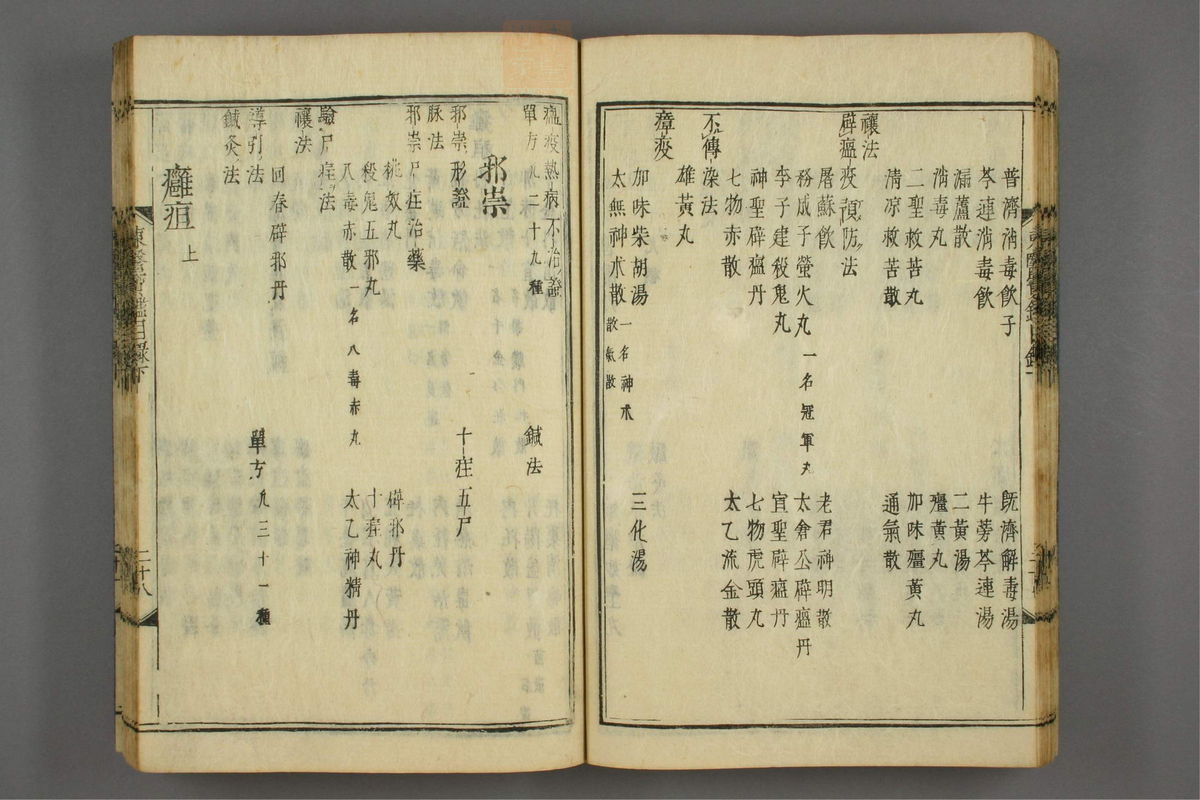 普濟消毒飲子
旣濟解毒湯
芩連消毒飲
牛蒡芩連湯
漏蘆散
二黃湯
消毒丸
殭黃丸
二聖救苦丸
加味殭黃丸
淸凉救苦散
通氣散
禳法
辟瘟疫預防法
屠蘇飮
老君神明散
務成子螢火丸 一名冠軍丸
太倉公辟瘟丹
李子建殺鬼丸
宣聖辟瘟丹
神聖辟瘟丹
七物虎頭丸
七物赤散
太乙流金散
不傳染法
雄黃丸
瘴疫
加味柴胡湯
三化湯
太無神朮散 一名神朮散氣散
瘟疫熱病不治證
鍼法
單方凡二十九種
邪祟
邪祟形證
十疰五尸
脉法
邪祟尸疰治藥
桃奴丸
辟邪丹
殺鬼五邪丸
十疰丸
八毒赤散 一名八毒赤丸
太乙神精丹
驗尸疰法
禳法
回春辟邪丹
導引法
單方凡三十一種
鍼灸法
癰疽 上
東醫寶鑑目錄下
二十八